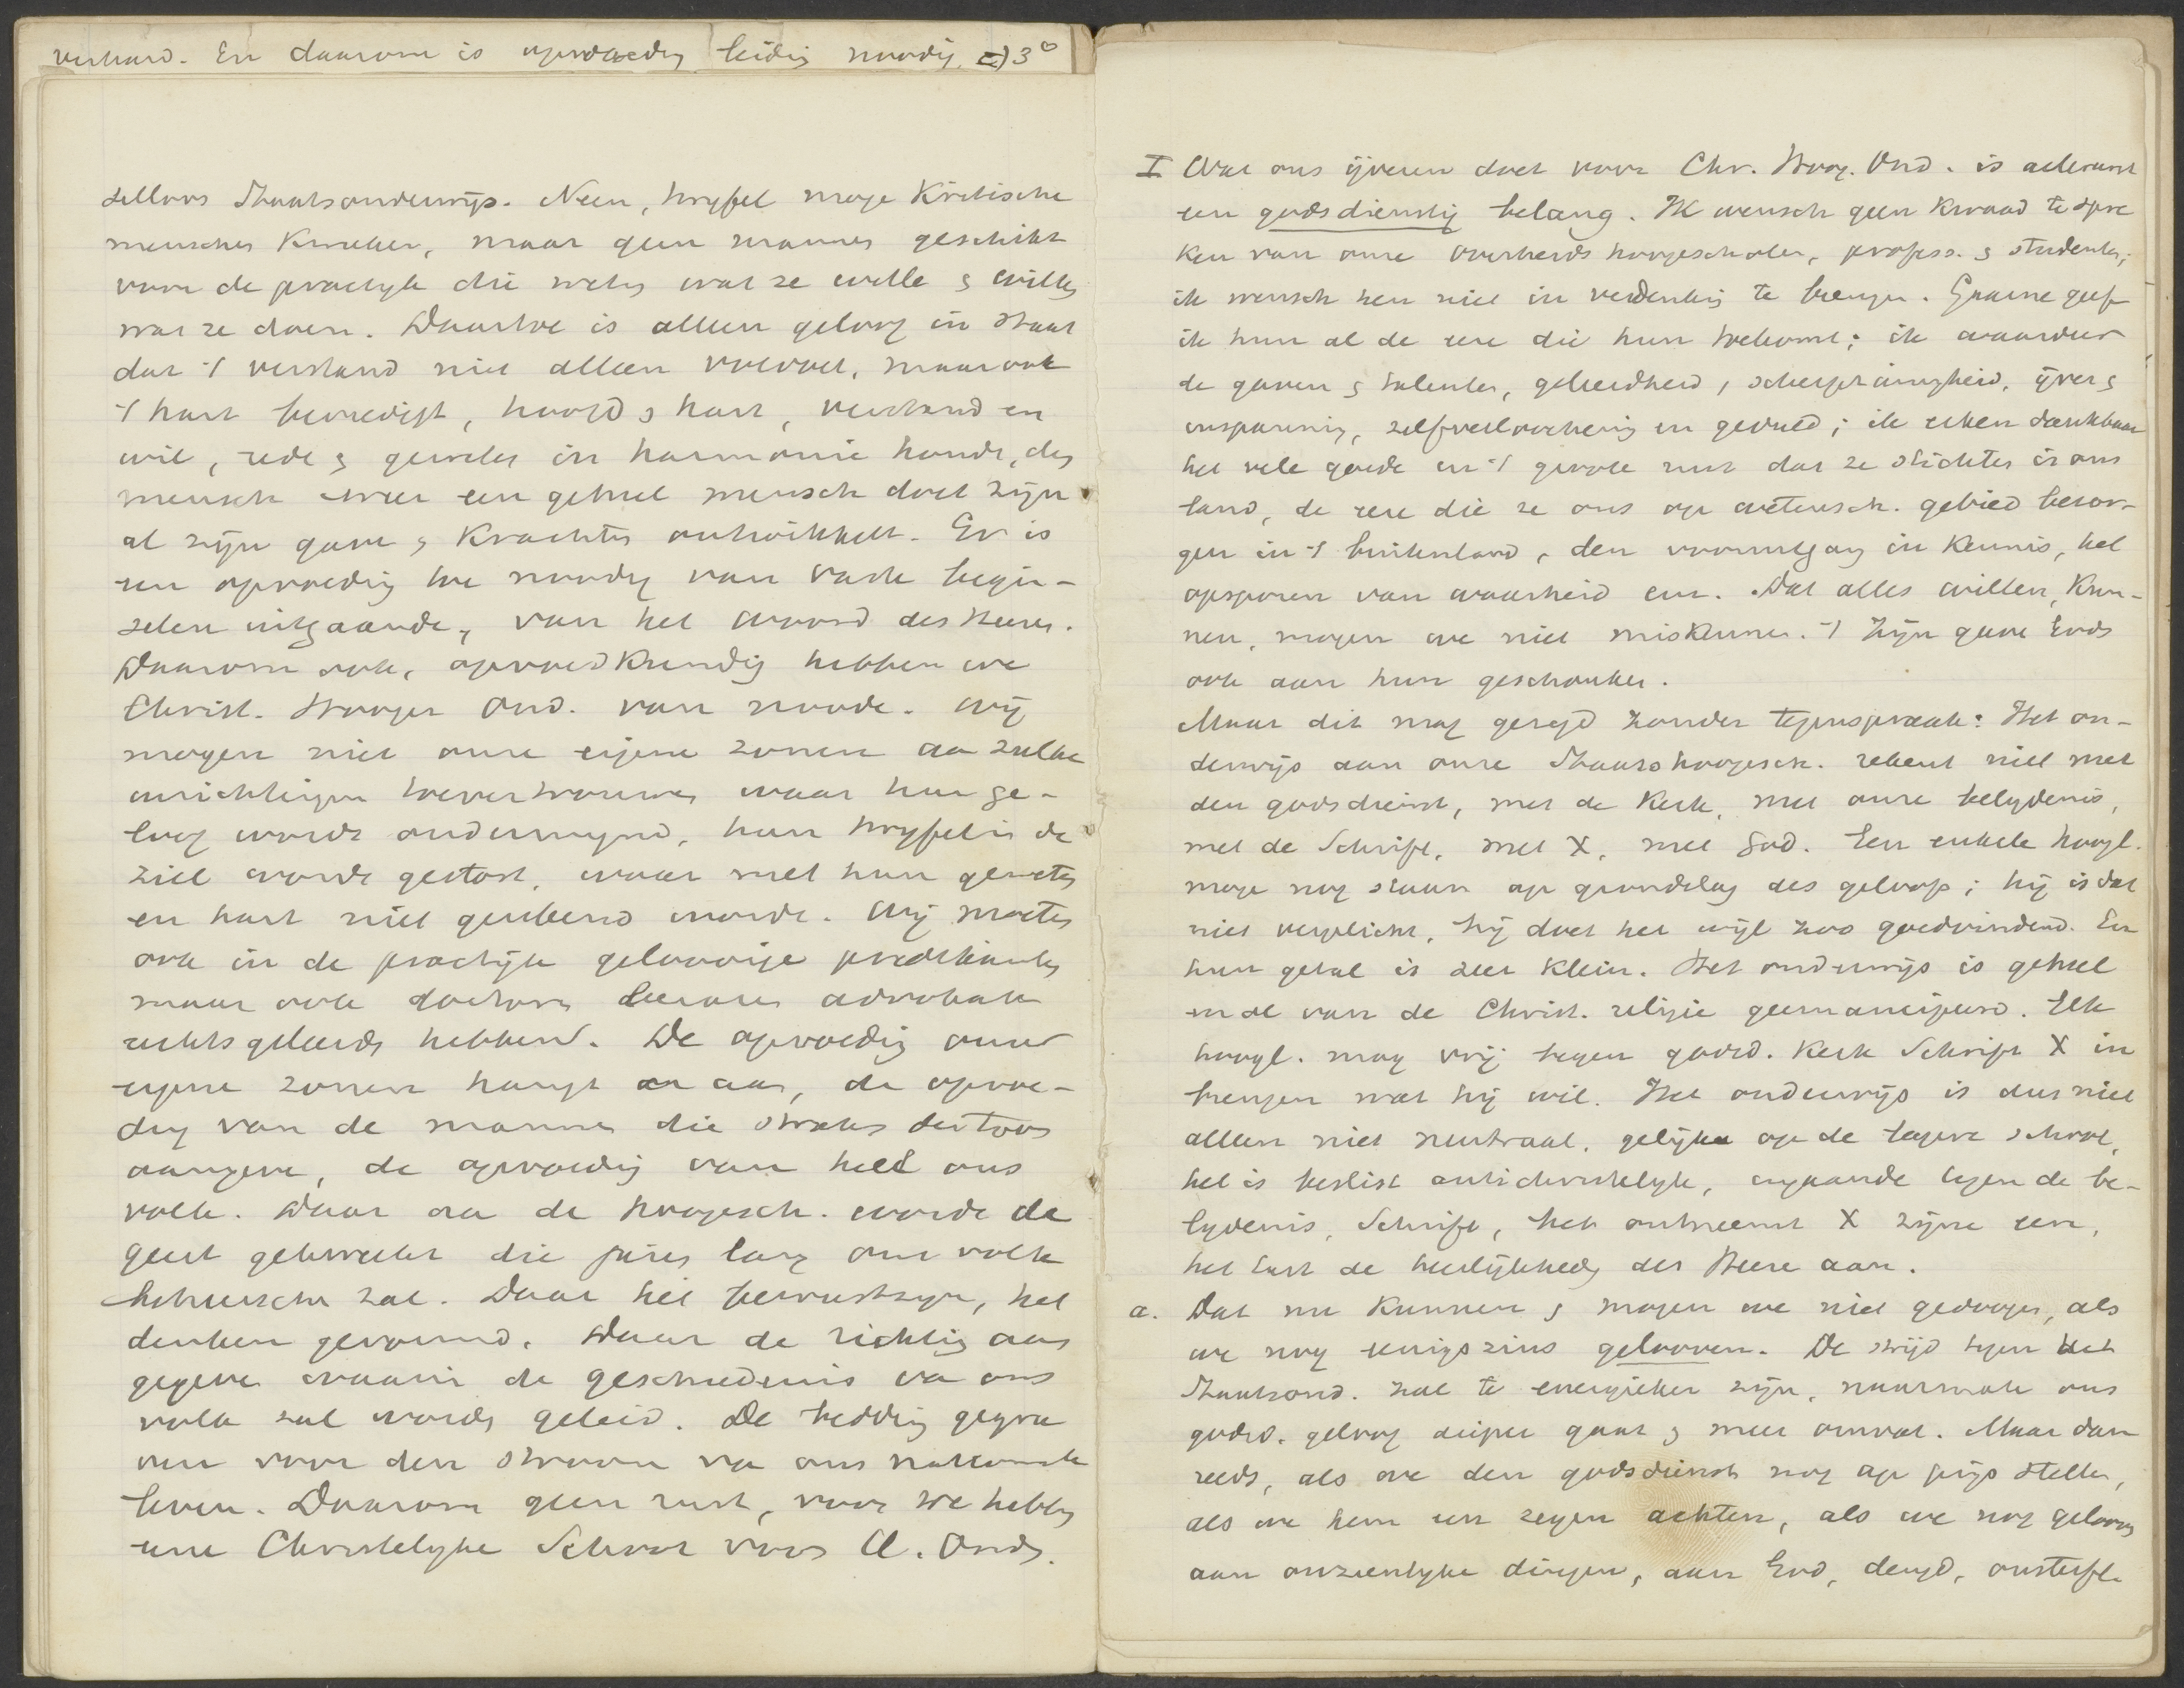 verhard. En daarom is opvoeding leiding noodig. 3°
delloos Staatsonderwijs. Neen, twyfel moge Kritische
menschen Kweeken, maar geen mannen geschikt
voor de practyk die weten wat ze wille & willen
wat ze doen. Daartoe is alleen geloof in staat
dat 't verstand niet alleen voedt, maar ook
't hart bevredigt, hoofd & hart, verstand en
wil, rede & geweten in harmonie houdt, den
mensch weer een geheel mensch doet zijn
al zijn gave & Krachten ontwikkelt. Er is
een opvoeding toe noodig van vaste begin-
selen uitgaande, van het woord des Heeren.
Daarom ook, opvoedkundig hebben we
Christ. Hooger Ond. van noode. Wij
mogen niet onze eigene zonen aa zulke
inrichtingen toevertrouwen waar hun ge-
loof wordt ondermynd, hun twyfel in de
ziel wordt gestort, waar met hun geweten
en hart niet gerekend wordt. Wij moeten
ook in de practijk geloovige predikanten
maar ook doctoren leeraren advokate
rechtsgeleerdn hebben. De opvoeding onzer
eigene zonen hangt er aan, de opvoe-
ding van de mannen die straks den toon
aangeve, de opvoeding van heel ons
volk. Daar aa de hoogesch. wordt de
geest gekweekt die jaren lang ons volk
beheersche zal. Daar het bewustzyn, het
denken gevormd. Daar de richting aan
gegeve waarin de geschiedenis va ons
volk zal worden geleid. De bedding gegra
ven voor den stroom va ons nationale
leven. Daarom geen rust, voor we hebben
eene Christelyke School voor H. Ond.
I Wat ons ijveren doet voor Chr. Hoog. Ond. is allereerst
een godsdienstig belang. Ik wensch geen kwaad te spre
ken van onze Overheids hoogescholen, profess. & studenten;
ik wensch hen niet in verdenking te brengen. Gaarne geef
ik hun al de eere die hun toekomt; ik waardeer
de gaven & talenten, geleerdheid, scherpzinnigheid, ijver &
inspanning, zelfverloochening en geduld; ik erken dankbaar
het vele goede en 't groote nut dat ze stichten in ons
land, de eere die ze ons op wetensch. gebied bezor-
gen in 't buitenland, den vooruitgang in Kennis, het
opsporen van waarheid enz. Dat alles willen, kun-
nen, mogen we niet miskennen. 't Zijn gave Gods
ook aan hun geschonken.
Maar dit mag gezegd zonder tegenspraak: Het on-
derwijs aan onze Staatshoogesch. rekent niet met
den godsdienst, met de Kerk, met onze belydenis,
met de Schrift, met X, met God. Een enkele hoogl.
moge nog staan op grondslag des geloofs; hij is dat
niet verplicht, hij doet het wijl zoo goedvindend. En
hun getal is zeer klein. Het onderwijs is geheel
en al van de Christ. religie geemancipeerd. Elk
hoogl. mag vrij tegen godsd. Kerk Schrift X in
brengen wat hij wil. Het onderwijs is dus niet
alleen niet neutraal, gelijk op de lagere school,
het is beslist antichristelyk, ingaande tegen de be-
lydenis, Schrift, het ontneemt X zijne eere,
het tast de heerlijkheid des Heere aan.
a. Dat nu kunnen & mogen we niet gedoogen, als
we nog eenigszins gelooven. De strijd tegen het
Staatsond. zal te energieker zijn, naarmate ons
godsd. geloof dieper gaat & meer omvat. Maar dan
reeds, als we den godsdienst nog op prijs stellen,
als we hem een zegen achten, als we nog gelooven
aan onzienlyke dingen, aan God, deugd, onsterfe-